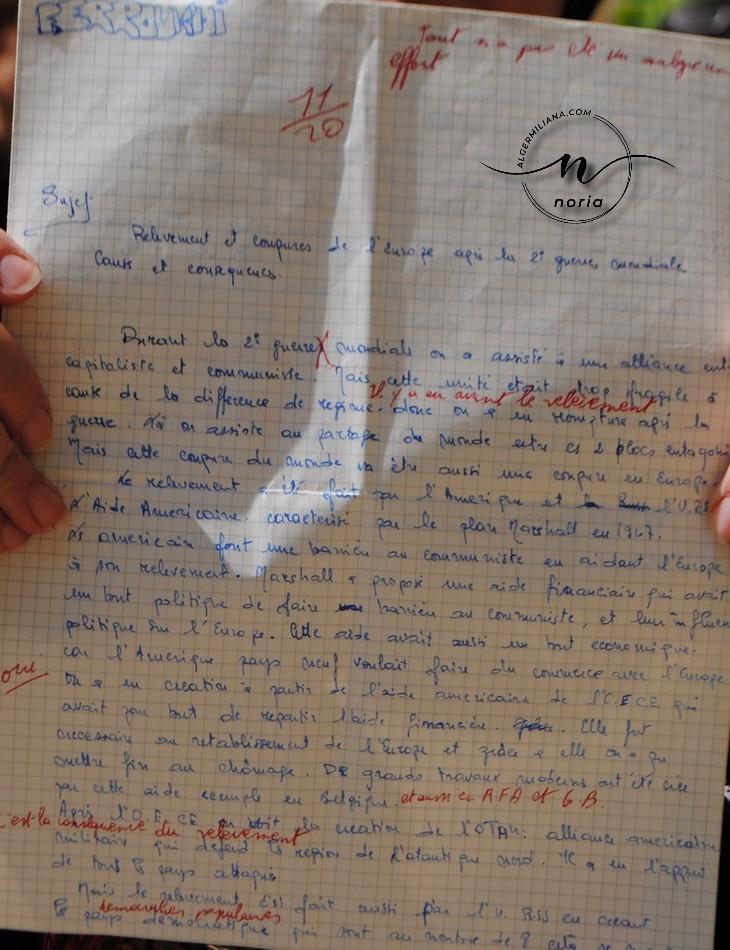 FERROUKHI
Tout n'a pas été vu malgré un
effort
11/20
ALGERMILIANA.COM
n
noria
Sujet
Relevement et coupures de l'Europe apré la 2e guerre mondiale
Causes et consequences.
Durant la 2e guerre mondiale on a assisté à une alliance ent
capitaliste et communiste. Mais cette unité etait trop fragile à
Il y a eu avant le relevement
cause de la difference de regime. donc on a eu rompture aprés la
guerre. on assiste au partage du monde entre ces 2 blocs antagoni
Mais cette coupure du monde va être aussi une coupure en Europe.
Le relevement a été fait par l'Amerique et l'U.RS
L'Aide Americaine. caracterisé par le plan Marshall en 1947.
Les americain font une barrière au communiste en aidant l'Europe
à son relevement. Marshall a proposé une aide financiaire qui avait
un bout politique de faire barrière au communiste, et leur influen
politique sur l'Europe. Cette aide avait aussi un bout economique.
car l'Amerique pays neuf voulait faire du commerce avec l'Europe
oui
On a eu creation à partir de l'aide americaine de l'O.E.C.E qui
avait pour but de repartir l'aide financière. Elle fut
necessaire au retablissement de l'Europe et grâce a elle on a pu
mettre fin au chômage. De grands travaux moderns ont été crée
par cette aide exemple en Belgique. et aussi en RFA et G B.
Aprés l'O.E.CE on voit la creation de l'OTAN. alliance americain
est la consequence du relevement
militaire qui defend les region de l'atlantique nord. Il a eu l'appui
de tout les pays attaqués
Mais le relevement s'est fait aussi par l'U. RSS en creant
démocraties populaires
les pays democratique qui sont au nombre de 8